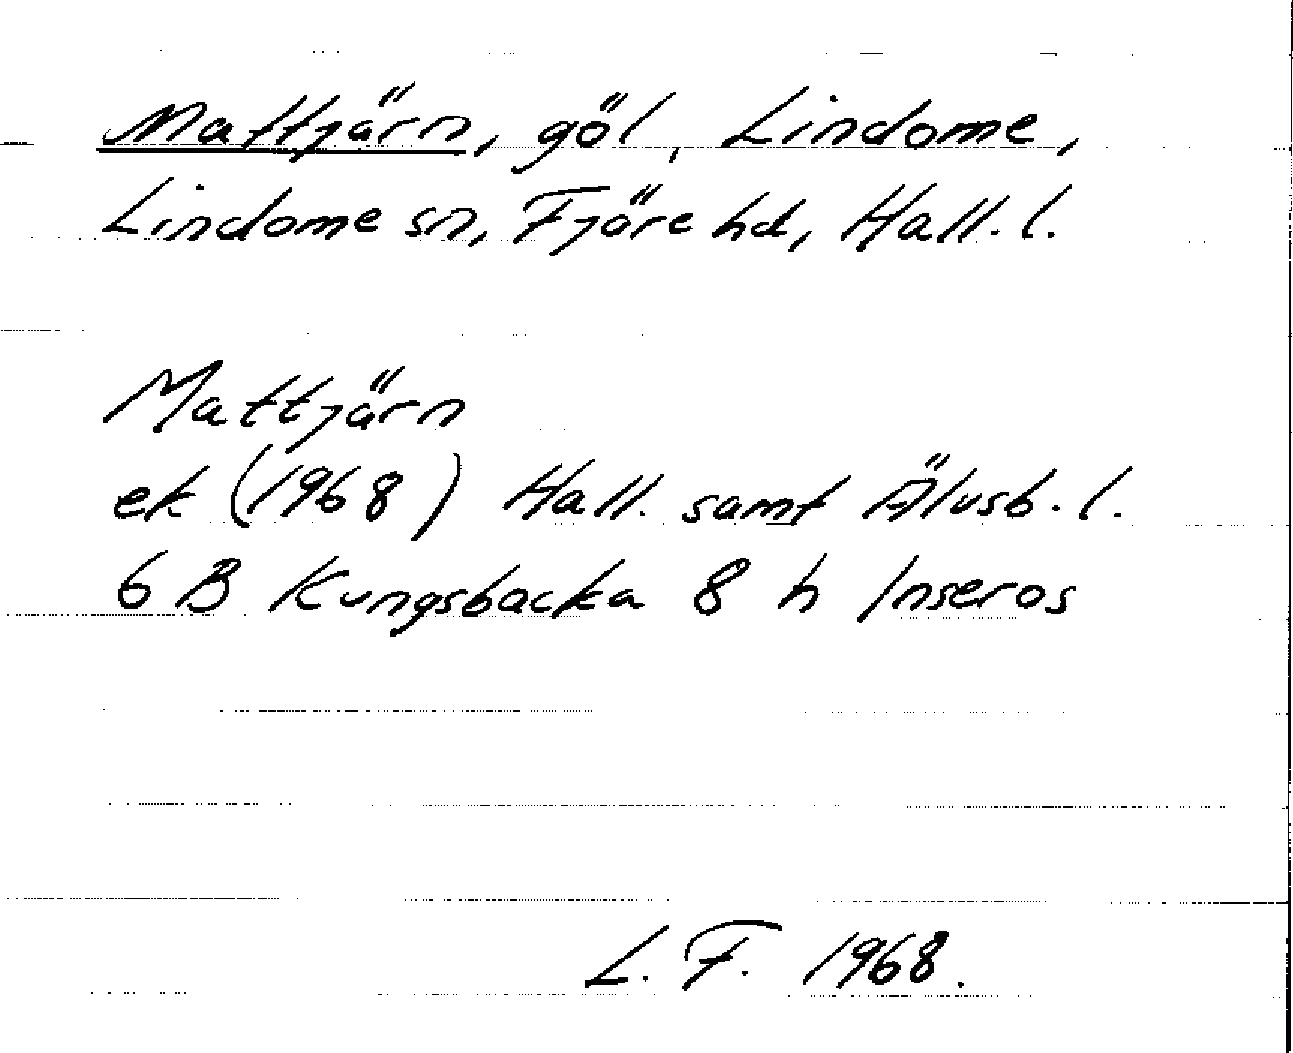 Mattjärn, göl, Lindome,
Lindome sn, Fjäre hd, Hall. l.
Mattjärn
ek (1968) Hall. samt Älvsb. l.
6 B Kungsbacka 8 h Inseros
L. F. 1968.